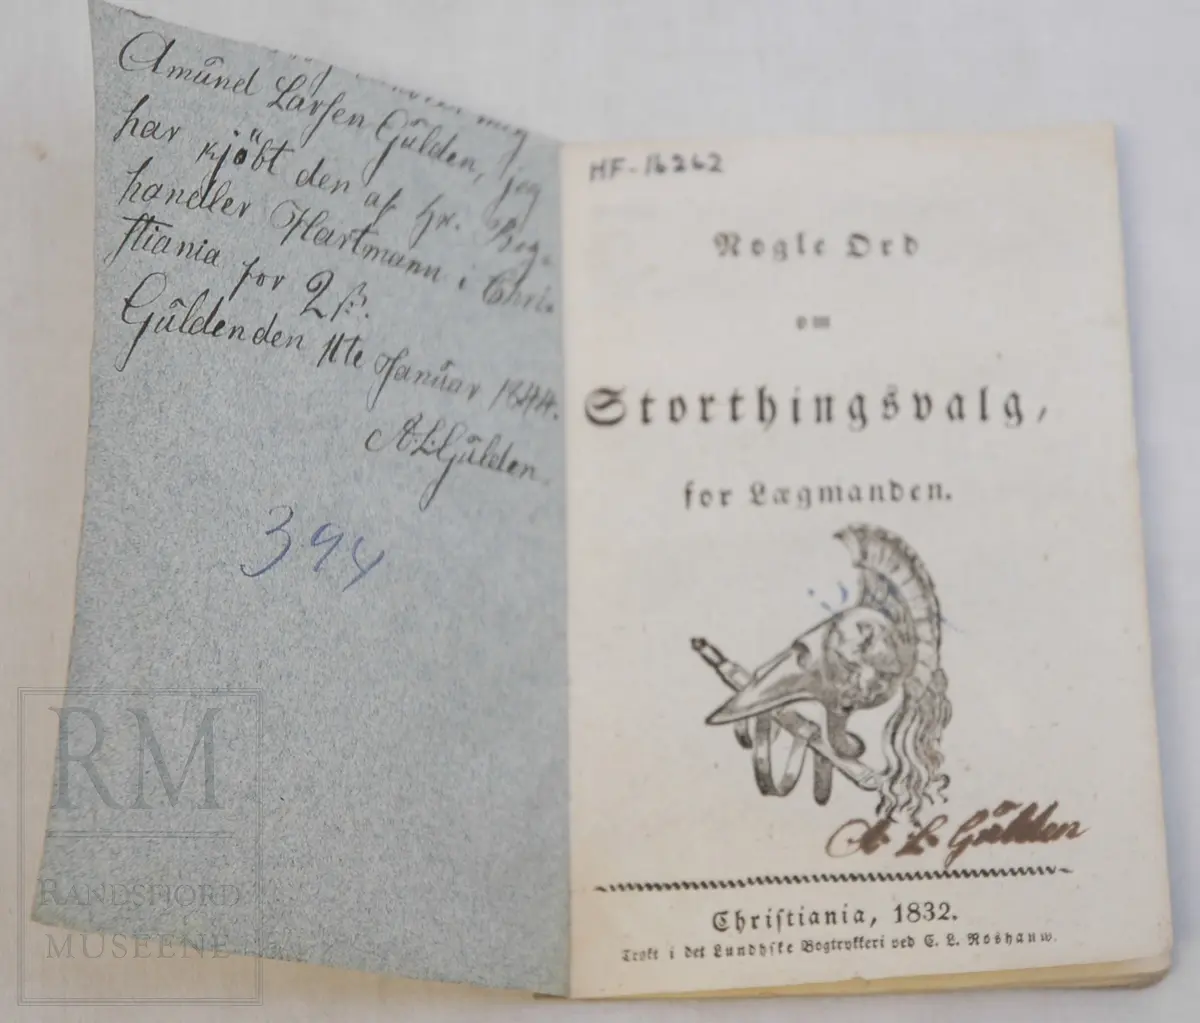 mig
Amund Larsen Gülden, jeg
har kjöbt den af Hr. Bog-
handler Hartmann i Chri-
stiania for 2 ß.
Gülden den 11te Januar 1844.
A. L. Gülden.
394
HF-16262
Nogle Ord
om
Storthingsvalg,
for Lægmanden.
A. L. Gülden
Christiania, 1832.
Trykt i det Lundhske Bogtrykkeri ved C. L. Roshauw.
RM
RANDSFJORD
MUSEENE